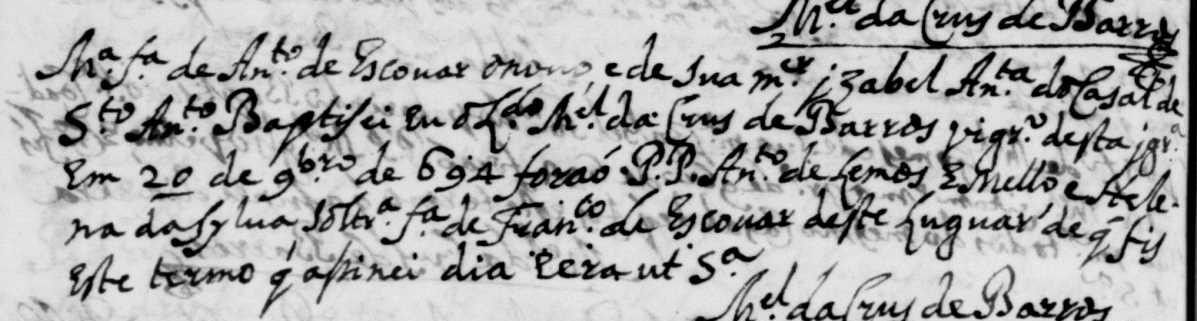 M.el da Crus de Barros
M.a f.a de An.to de Escouar o nouo, e de sua m.er jzabel An.ta do Casal de
S.to An.to Baptisei Eu o L.do M.el da Crus de Barros vigr.o desta jgr.a
Em 20 de 9bro de 694 foraó P.P. An.to de Lemos E Mello e Hele-
na da Sylua soltr.a f.a de Fran.co de Escouar deste Luguar de q̃ fis
Este termo q̃ asinei dia E era ut S.a
M.el da Crus de Barros